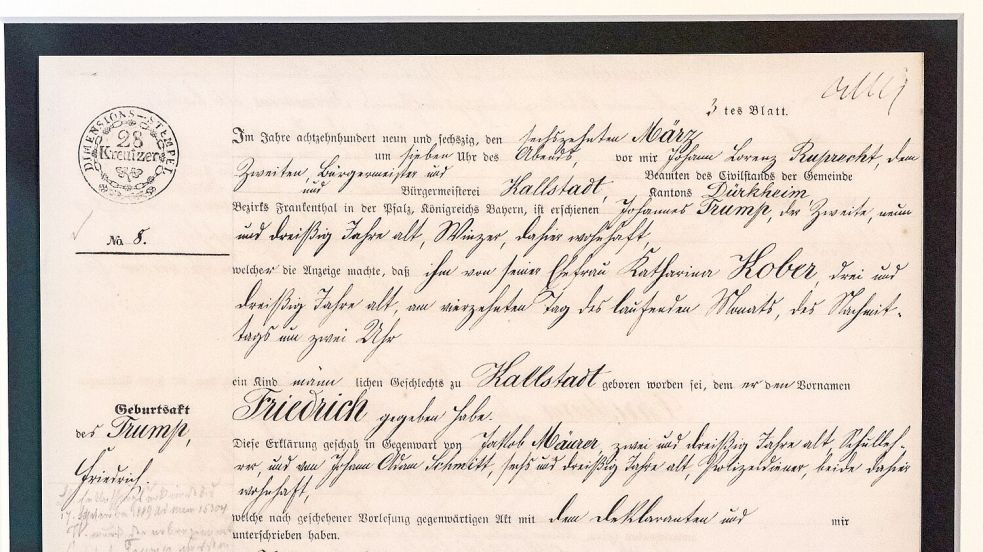 3tes Blatt.
DIMENSIONS-STEMPEL
28
Kreutzer
Im Jahre achtzehnhundert neun und sechszig, den sechszehnten März
um sieben Uhr des Abends, vor mir Johann Lorenz Ruprecht, dem
Zweiten, Bürgermeister und Beamten des Civilstands der Gemeinde
und Bürgermeisterei Kallstadt, Kantons Dürkheim
Bezirks Frankenthal in der Pfalz, Königreichs Bayern, ist erschienen Johannes Trump, der Zweite, neun
und dreißig Jahre alt, Winzer, dahier wohnhaft,
No. 8.
welcher die Anzeige machte, daß ihm von seiner Ehefrau Katharina Kober, drei und
dreißig Jahre alt, am vierzehnten Tag des laufenden Monats, des Nachmit-
tags um zwei Uhr
ein Kind männlichen Geschlechts zu Kallstadt geboren worden sei, dem er den Vornamen
Friedrich gegeben habe.
Geburtsakt
des Trump,
Friedrich.
Diese Erklärung geschah in Gegenwart von Jakob Mäurer, zwei und dreißig Jahre alt, Schulleh-
rer, und von Johann Adam Schmitt, sechs und dreißig Jahre alt, Polizeidiener, beide dahier
wohnhaft,
welche nach geschehener Vorlesung gegenwärtigen Akt mit dem Deklaranten und mir
unterschrieben haben.